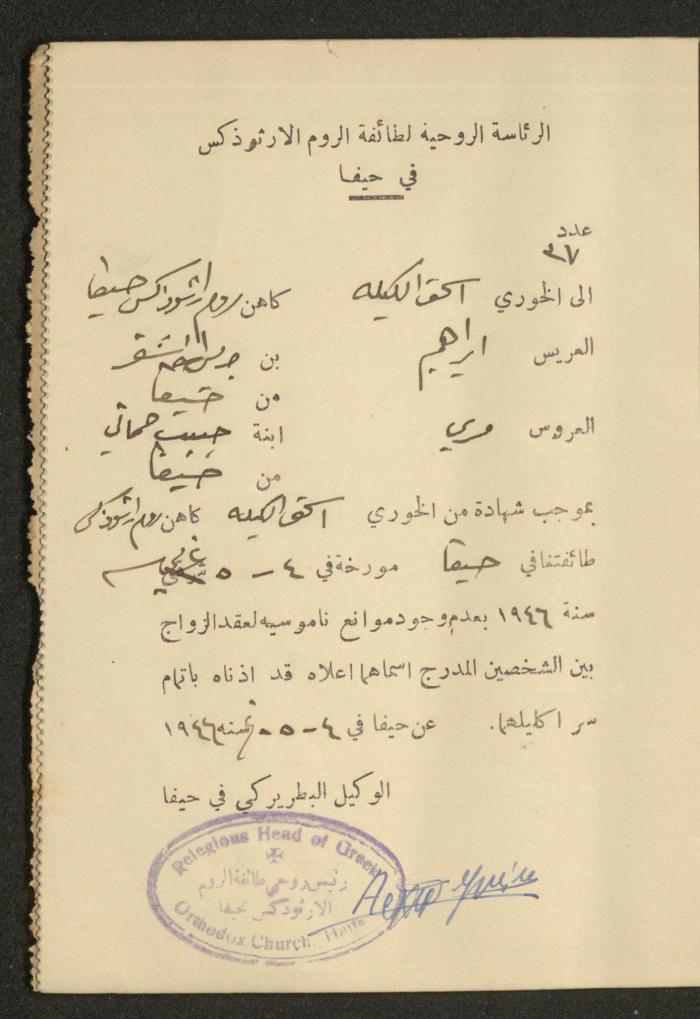 الرئاسة الروحية لطائفة الروم الارثوذكس
في حيفا
عدد
٣٧
الى الخوري اسحق الكيله كاهن روم ارثوذكس حيفا
العريس ابراهيم بن جريس
من حيفا
العروس مري ابنة حبيب
من حيفا
بموجب شهادة من الخوري اسحق الكيله كاهن روم ارثوذكس
طائفتنا في حيفا مورخة في ٤ – ٥
سنة ١٩٤٦ بعدم وجود موانع ناموسيه لعقد الزواج
بين الشخصين المدرج اسماهما اعلاه قد اذناه باتمام
سر اكليلهما. عن حيفا في ٤ – ٥ – سنه ١٩٤٦
الوكيل البطريركي في حيفا
Relegious Head of Greek
رئيس روحي طائفة الروم
الارثوذكس بحيفا
Orthodox Church, Haifa